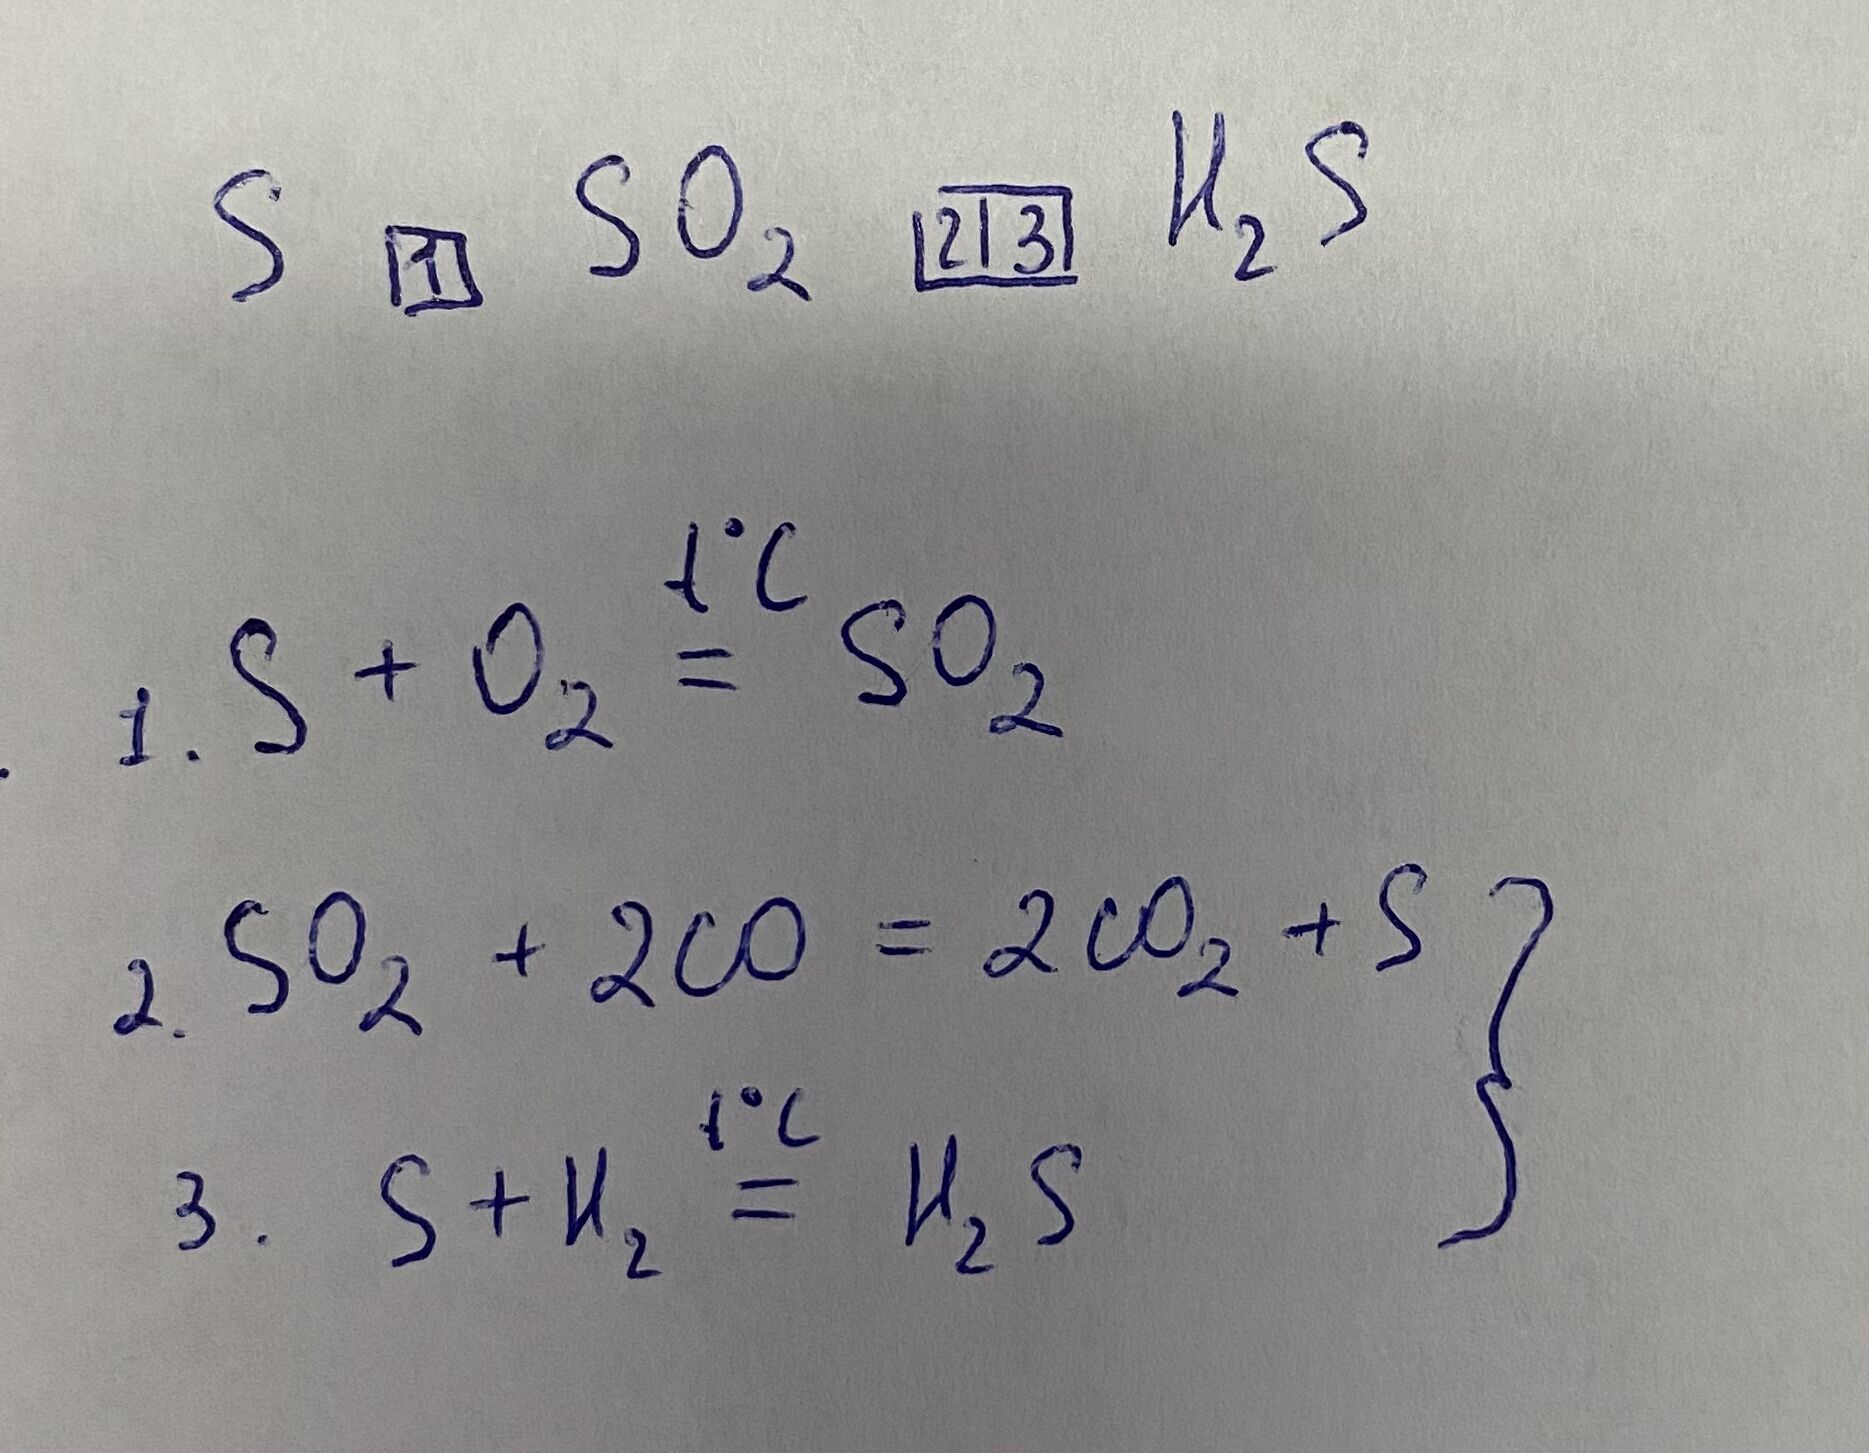 S [1] SO₂ [2|3] H₂S
t°C
1. S + O₂ = SO₂
2. SO₂ + 2CO = 2CO₂ + S }
t°C
3. S + H₂ = H₂S